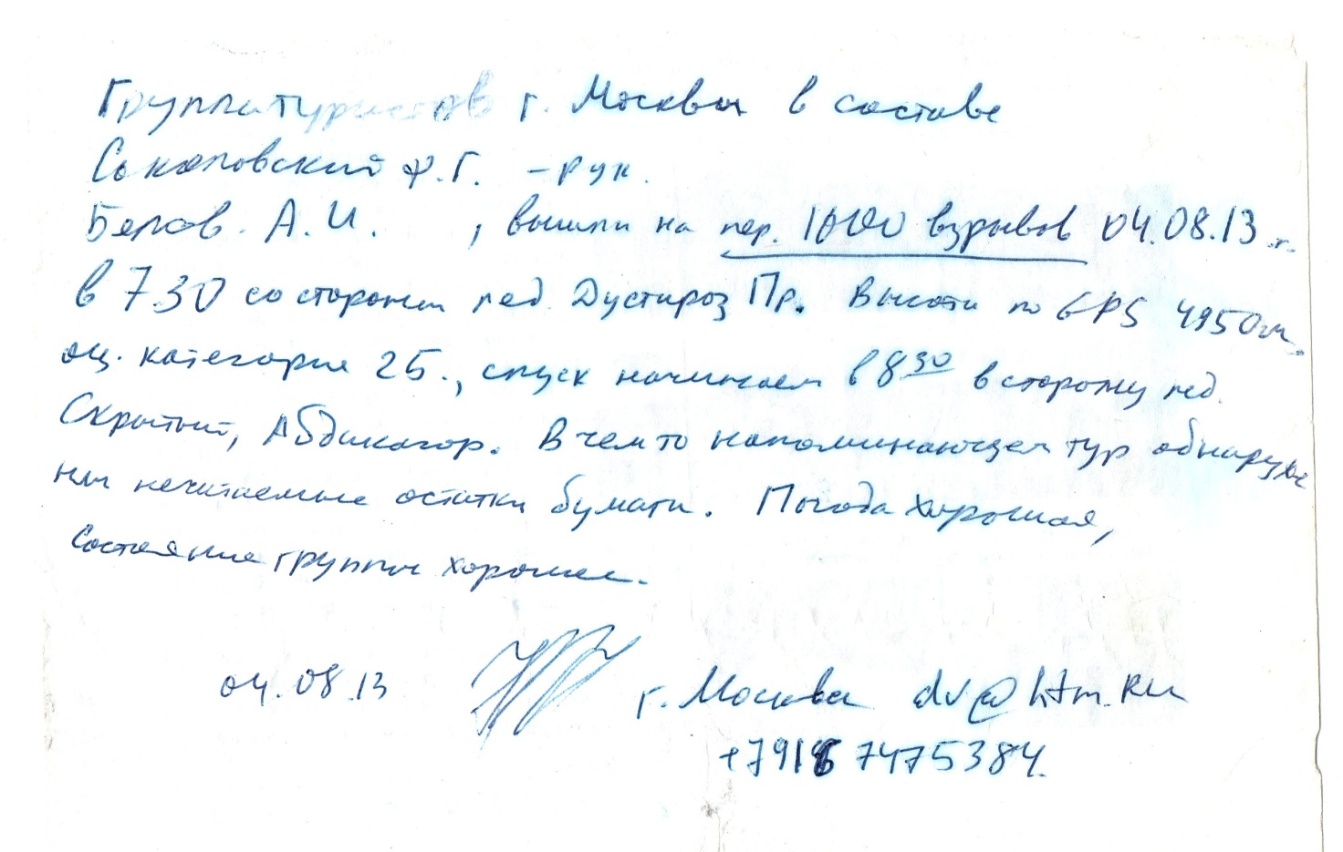 Группа туристов г. Москвы в составе
Сокаловский Ф.Г. - рук.
Белов. А.И. , вышли на пер. 1000 взрывов 04.08.13 г.
в 7.30 со стороны лед. Дустироз Пр. Высота по GPS 4950м.
оц. категория 2Б., спуск начинаем в 8 30 в сторону лед.
Скрытый, Абдукагор. В чем то напоминающем тур обнаруже
ны нечитаемые остатки бумаги. Погода хорошая,
Состояние группы хорошее.
04.08.13 г. Москва dv@htm.ru
+7916 7475384.